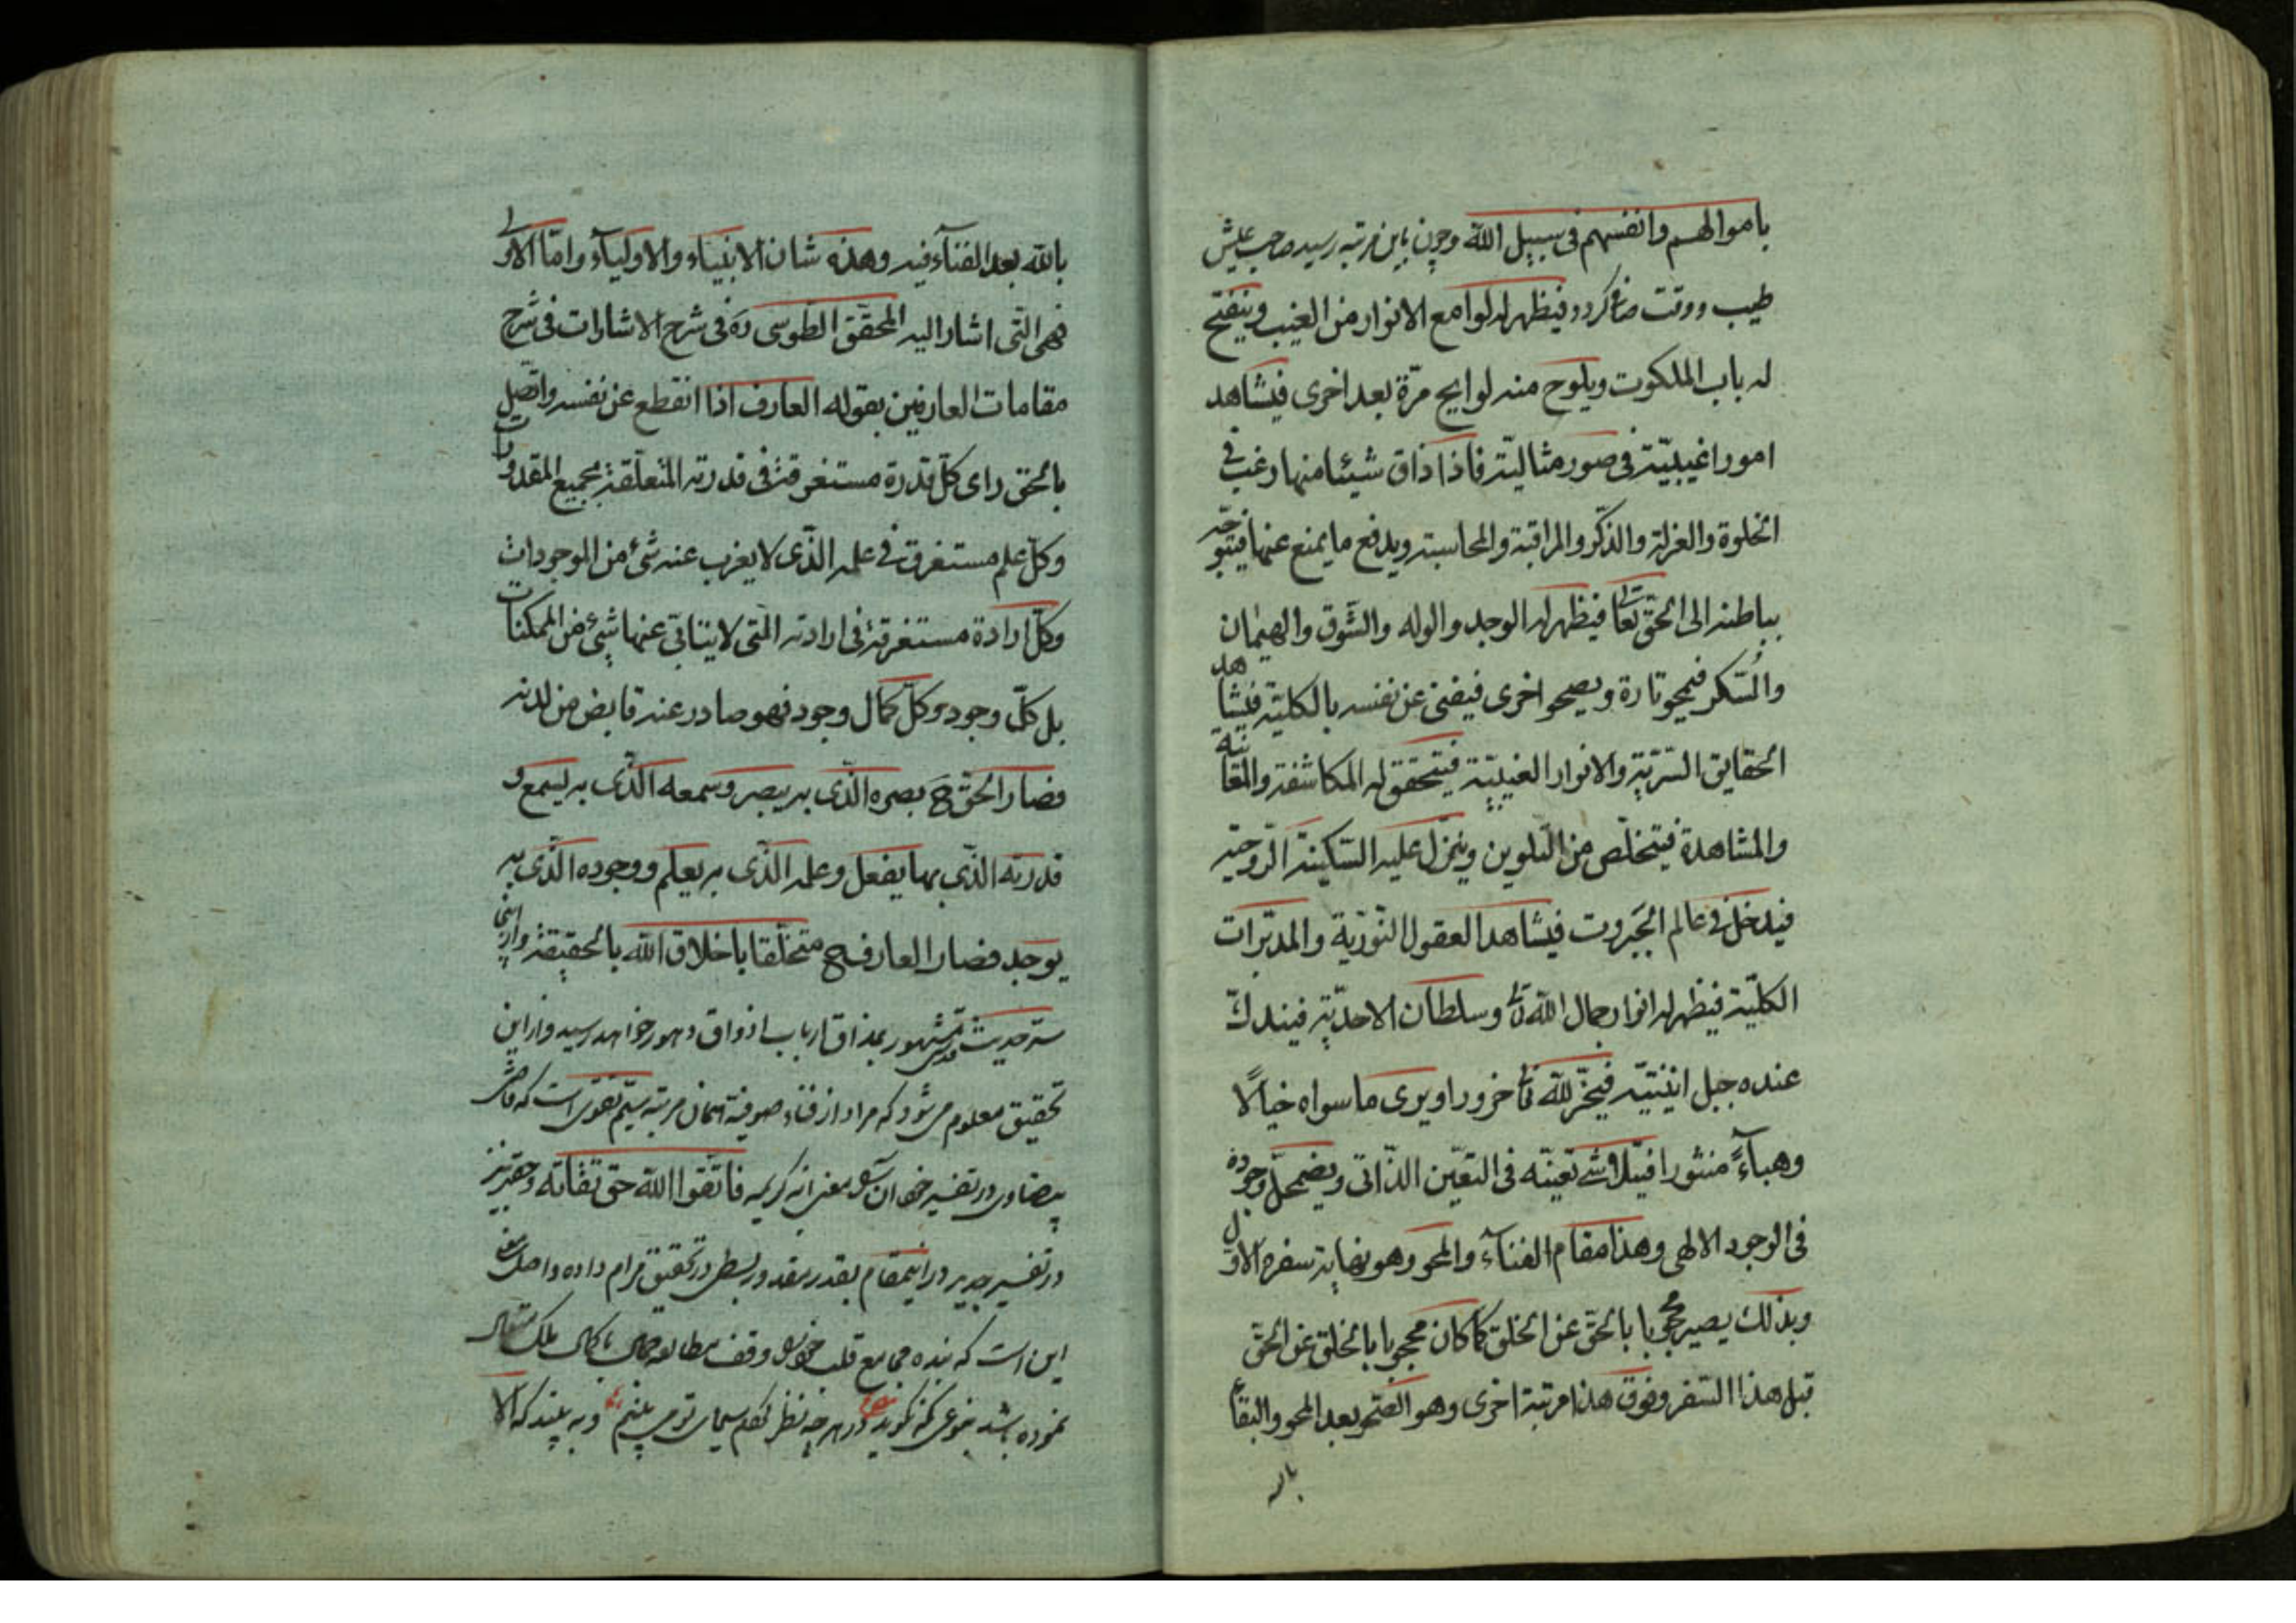 باموالهم وانفسهم فی سبیل الله وچون باین مرتبه رسید صاحب عیش
طیب ووقت صافی کردد فیظهر له لوامع الانوار من الغیب وینفتح
له باب الملکوت ویلوح منه لوایح مرّة بعد اخری فیشاهد
امورا غیبیّة فی صور مثالیّة فاذا ذاق شیئا منها رغب فی
الخلوة والعزلة والذّکر والمراقبة والمحاسبة ویدفع ما یمنع عنها فیتوجّه
بباطنه الی الحقّ تعالی فیظهر له الوجد والوله والشّوق والهیمان
والسّکر فیمحو تارة ویصحو اخری فیفنی عن نفسه بالکلّیّة فیشاهد
الحقایق السّرّیّة والانوار الغیبیّة فیتحقق له المکاشفة والمعاینة
والمشاهدة فیتخلّص من التّلوین وینزل علیه السّکینة الرّوحیّة
فیدخل فی عالم الجبروت فیشاهد العقول النّوریّة والمدبّرات
الکلّیّة فیظهر له انوار جمال الله تعالی وسلطان الاحدیّة فیندکّ
عنده جبل اینیّته فیخرّ لله تعالی خرورا ویری ماسواه خیالًا
وهباءً منثورا فیتلاشی تعیّنه فی التعیّن الذّاتی ویضمحلّ وجوده
فی الوجود الالهی وهذا مقام الفنآء والمحو وهو نهایة سفره الاوّل
وبذلک یصیر محجوبا بالحقّ عن الخلق کما کان محجوبا بالخلق عن الحقّ
قبل هذا السّفر وفوق هذا مرتبة اخری وهو الصّحو بعد المحو والبقآء
بالله
بالله بعد الفنآء فیه وهذه شان الانبیاء والاولیآء وامّا الاولی
فهی الّتی اشار الیه المحقّق الطوسی ره فی شرح الاشارات فی شرح
مقامات العارفین بقوله العارف اذا انقطع عن نفسه واتّصل
بالحق رای کلّ قدرة مستغرقة فی قدرته المتعلّقة بجمیع المقدورات
وکلّ علم مستغرق فی علمه الّذی لا یعزب عنه شیء من الموجودات
وکلّ ارادة مستغرقة فی ارادته الّتی لا یتنابی عنها شیء من الممکنات
بل کلّ وجود وکلّ کمال وجود فهو صادر عنه قایض من لدنه
فصار الحقّ ح بصره الّذی به یبصر وسمعه الّذی به یسمع و
قدرته الّتی بها یفعل وعلمه الّذی به یعلم ووجوده الّذی به
یوجد فصار العارف ح متخلّقا باخلاق الله بالحقیقة وازینجا
سرّ حدیث قدسی مشهور بمذاق ارباب اذواق وهور خواهد رسید واز این
تحقیق معلوم می شود که مراد از فناء صوفیّه همان مرتبه سیّم تقوی است که فاضل
بیضاوی در تفسیر خود ان معنی ایه کریمه فاتّقوا الله حق تقاته وحقیر نیز
در تفسیر جدید در اینمقام بقدر مقدور بسطی در تحقیق مرام داده واصل معنی
این است که بنده مجامع قلب خود وقف مطالعه جمال باکمال ملک متعال
نموده باشد بنوعی که کوید در هر چه نظر کنم سیمای تو می بینم وبه بیند که الا